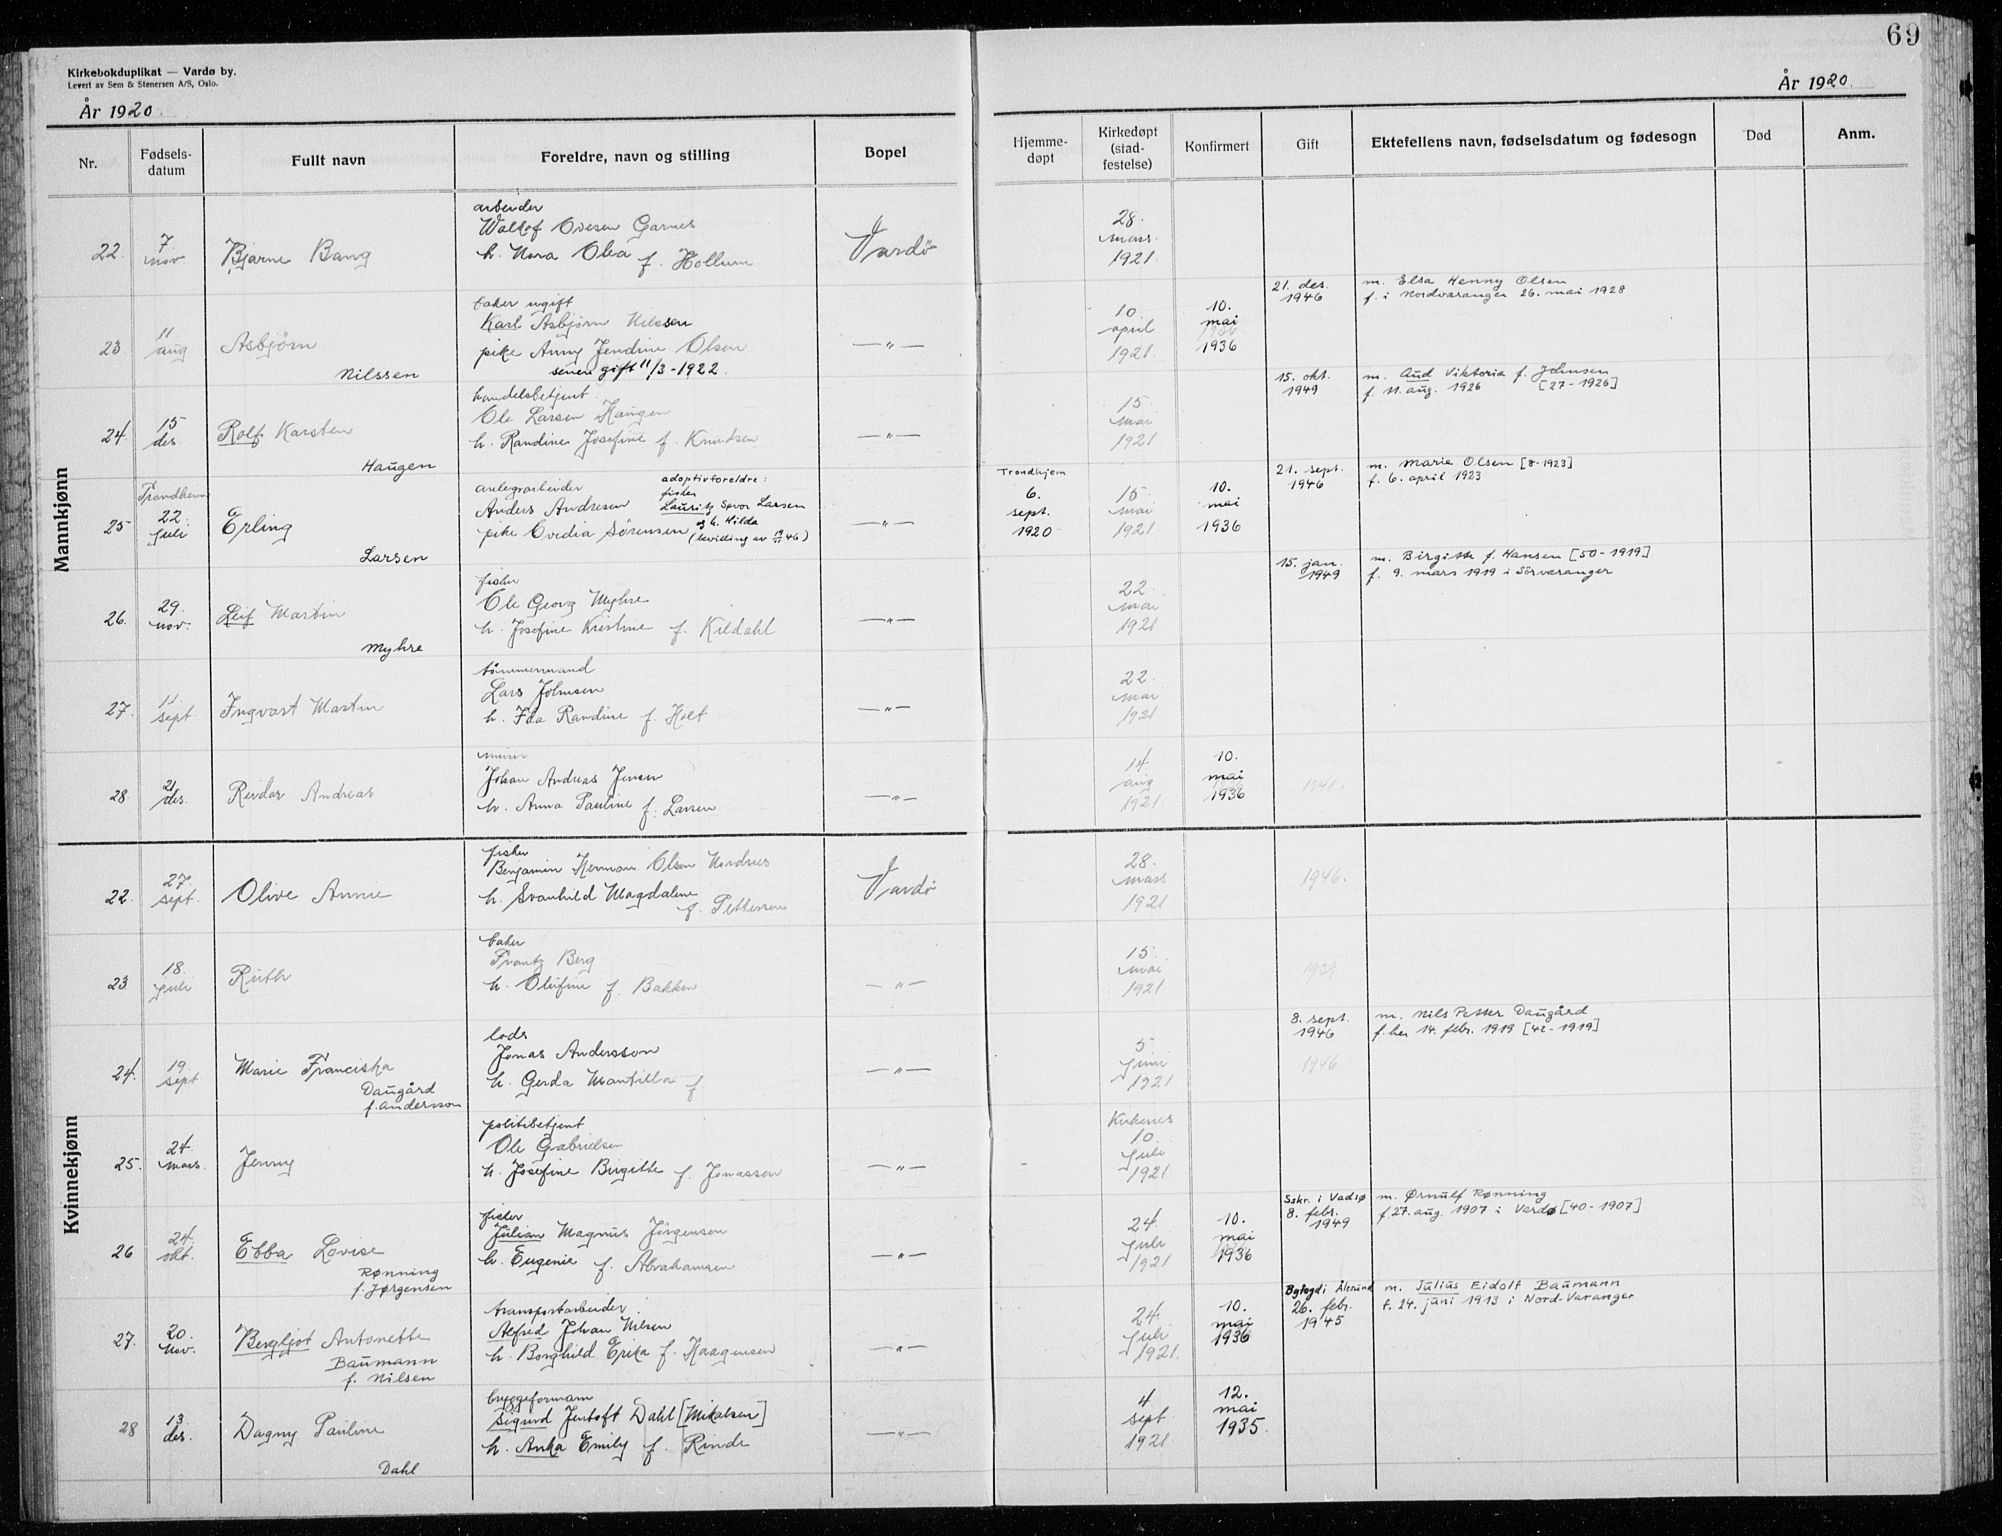 69
Kirkebokduplikat — Vardø by.
Levert av Sem & Stenersen A/S, Oslo.
År 1920.
År 1920.
Nr.
Fødsels-
datum
Fullt navn
Foreldre, navn og stilling
Bopel
Hjemme-
døpt
Kirkedøpt
(stad-
festelse)
Konfirmert
Gift
Ektefellens navn, fødselsdatum og fødesogn
Død
Anm.
Mannkjønn
arbeider
22. 7. nov Bjarne Bang
Ovesen Garnes
h. Nora Olea f. Hollum
Vardø
28. mars 1921
baker ugift
23 11 aug Asbjørn
Nilssen
Karl Asbjørn Nilssen
pike Anny Jendine Olsen
senere gift 11/3-1922.
—"—
10 april 1921.
10. mai 1936
21. des. 1946
m. Elsa Henny Olsen
f. i Nordvaranger 26. mai 1928
handelsbetjent
24. 15 des. Rolf Karsten
Haugen
Ole Larsen Haugen
h. Randine Josefine f. Knudsen
—"—
15 mai 1921
15. okt. 1949
m. Aud Viktoria f. Johnsen
f. 11. aug. 1926 [27-1926]
Trondheim
25 22. juli Erling
Larsen
anlegsarbeider
Anders Andresen
pike Ovedia Sørensen
adoptivforeldre:
fisker
Lauritz Larsen
og h. Hilda
—"—
Trondhjem
6. sept. 1920
15 mai 1921
10. mai 1936
21. sept. 1946
m. Marie Olsen [8-1923]
f. 6. april 1923
fisker
26. 29. nov. Leif Martin
Myhre
Ole Georg Myhre
h. Josefine Kristine f. Kildahl
—"—
22. mai 1921
15. jan. 1949
m. Birgith f. Hansen [50-1919]
f. 9. mars 1919 i Sörvaranger
tømmermand
27. 11 sept. Ingvart Martin
Lars Johnsen
h. Ida Randine f. Holt
—"—
22. mai 1921
murer
28. 21 des. Reidar Andreas
Johan Andreas Jensen
h. Anna Pauline f. Larsen
—"—
14 aug 1921.
10. mai 1936
1941.
Kvinnekjønn
fisker
22. 27 sept. Olive Annie
Benjamin Herman Olsen Nordnes
h. Svanhild Magdalene
f. Pettersen
Vardø
28. mars 1921
1946.
baker
23 18. juli Ruth
Frantz Berg
h. Olufine f. Bakken
—"—
15. mai 1921
1939
lods
24. 19 sept Marie Franciska
Daugård
f. Andersson
Jonas Andersson
h. Gerda Mantilla f
—"—
5 juni 1921.
8. sept. 1946
1946
m. Nils Petter Daugård
f. her 14. febr. 1919 [42-1919]
politibetjent
25. 24. mars. Jenny
Ole Gabrielsen
h. Josefine Birgitte f. Jonassen
—"—
Kirkenes
10. juli 1921
fisker
26 24. okt. Ebba Lovise
Rønning
f. Jørgensen
Julian Magnus Jørgensen
h. Eugenie f. Abrahamsen
—"—
24. juli 1921
10. mai 1936
Sskr. i Vadsø
8. febr. 1949
m. Ørnulf Rønning
f. 27. aug. 1907 i Vardø [40-1907]
transportarbeider.
27. 20 nov. Bergljot Antonette
Baumann
f. Nilsen
Alfred Johan Nilsen
h. Borghild Erika f. Haagensen
—"—
24. juli 1921.
10. mai 1936
Byfogd i Ålesund
26. febr. 1945
m. Julius Eidolf Baumann
f. 24. juni 1913 i Nord-Varanger
byggeformann
28 13 des. Dagny Pauline
Dahl
Sigurd Jentoft Dahl [Mikalsen]
h. Anka Emily f. Rinde
—"—
4 sept 1921
12. mai 1935.